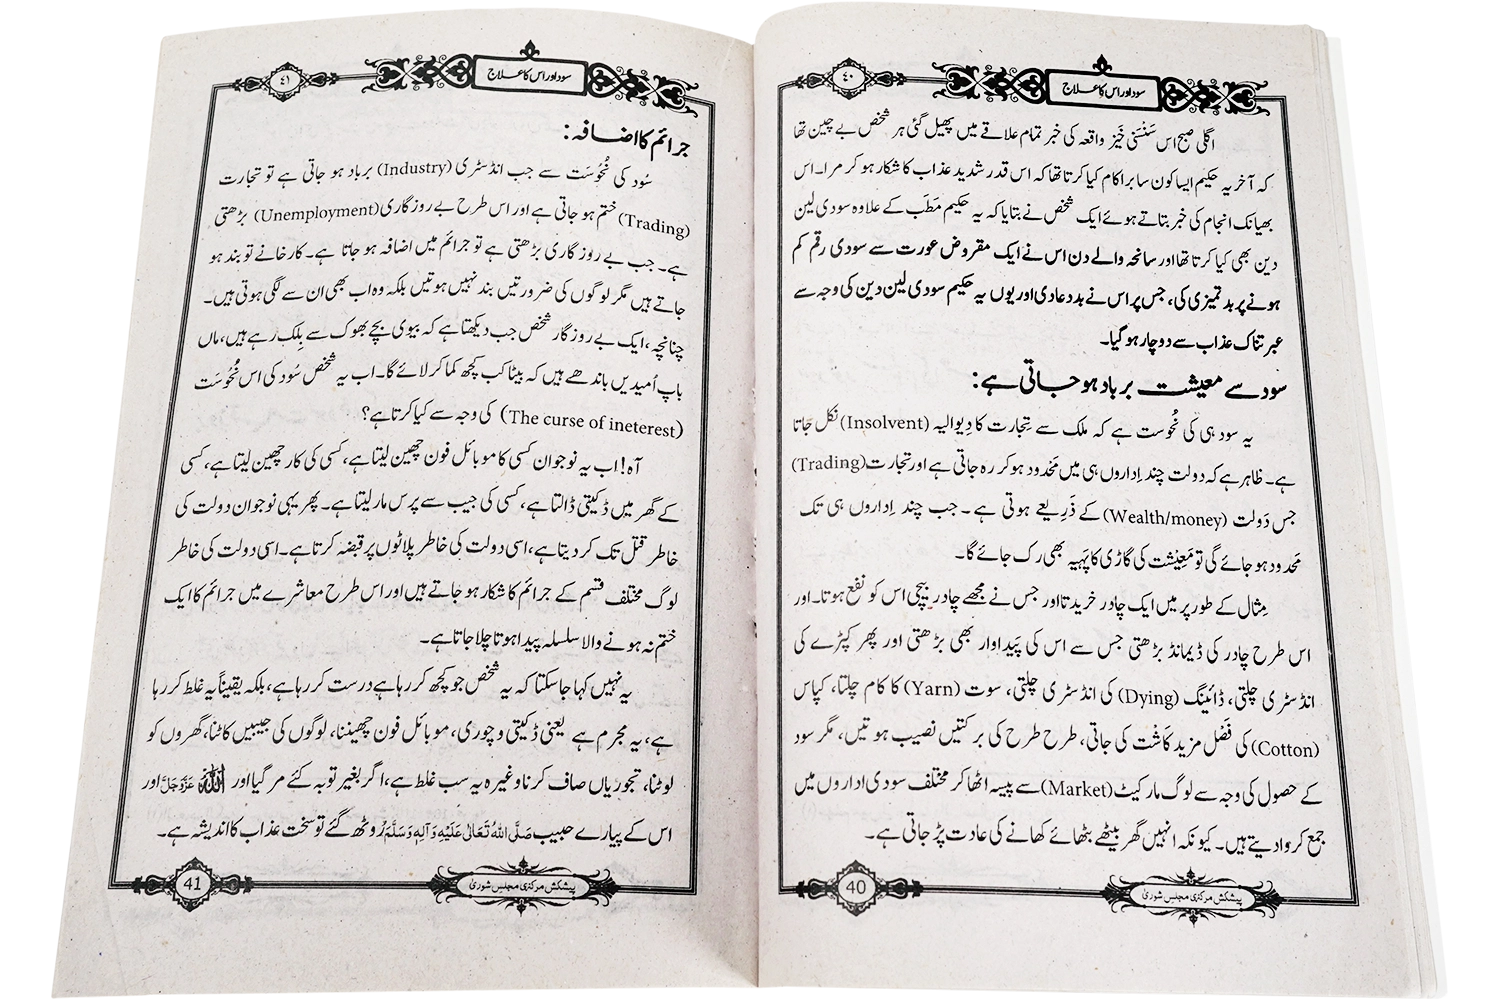 سود اور اس کا علاج
٤٠
اگلی صبح اس سَنْسَنی خَیز واقعہ کی خبر تمام علاقے میں پھیل گئی ہر شخص بے چین تھا
کہ آخر یہ حکیم ایسا کون سا برا کام کیا کرتا تھا کہ اس قدر شدید عذاب کا شکار ہو کر مرا۔ اس
بھیانک انجام کی خبر بتاتے ہوئے ایک شخص نے بتایا کہ یہ حکیم مَطَب کے علاوہ سودی لین
دین بھی کیا کرتا تھا اور سانحہ والے دن اس نے ایک مقروض عورت سے سودی رقم کم
ہونے پر بدتمیزی کی، جس پر اس نے بددعا دی اور یوں یہ حکیم سودی لین دین کی وجہ سے
عبرتناک عذاب سے دوچار ہو گیا۔
سود سے معیشت برباد ہو جاتی ہے:
یہ سود ہی کی نُحُوست ہے کہ ملک سے تِجارت کا دِیوالیہ (Insolvent) نکل جاتا
ہے۔ ظاہر ہے کہ دولت چند اِداروں ہی میں مَحَدود ہو کر رہ جاتی ہے اور تجارت (Trading)
جس دَولت (Wealth/money) کے ذَرِیعے ہوتی ہے۔ جب چند اِداروں ہی تک
مَحَدود ہو جائے گی تو مَعِیْشت کی گاڑی کا پَہیہ بھی رک جائے گا۔
مِثال کے طور پر میں ایک چادر خریدتا اور جس نے مجھے چادر بیچی اس کو نفع ہوتا۔ اور
اس طرح چادر کی ڈیمانڈ بڑھتی جس سے اس کی پَیداوار بھی بڑھتی اور پھر کپڑے کی
انڈسٹری چلتی، ڈائینگ (Dying) کی انڈسٹری چلتی، سوت (Yarn) کا کام چلتا، کپاس
(Cotton) کی فَصْل مزید کاشْت کی جاتی، طرح طرح کی برکتیں نصیب ہوتیں، مگر سود
کے حصول کی وجہ سے لوگ مارکیٹ (Market) سے پیسہ اٹھا کر مختلف سودی اداروں میں
جمع کروا دیتے ہیں۔ کیونکہ انہیں گھر بیٹھے بٹھائے کھانے کی عادت پڑ جاتی ہے۔
پیشکش مرکزی مجلس شوریٰ
40
سود اور اس کا علاج
٤١
جرائم کا اضافہ:
سُود کی نُحُوسَت سے جب انڈسٹری (Industry) برباد ہو جاتی ہے تو تجارت
(Trading) ختم ہو جاتی ہے اور اس طرح بے روزگاری (Unemployment) بڑھتی
ہے۔ جب بے روز گاری بڑھتی ہے تو جرائم میں اضافہ ہو جاتا ہے۔ کارخانے تو بند ہو
جاتے ہیں مگر لوگوں کی ضرورتیں بند نہیں ہوتیں بلکہ وہ اب بھی ان سے لگی ہوتی ہیں۔
چنانچہ، ایک بے روز گار شخص جب دیکھتا ہے کہ بیوی بچے بھوک سے بِلک رہے ہیں، ماں
باپ اُمیدیں باندھے ہیں کہ بیٹا کب کچھ کما کر لائے گا۔ اب یہ شخص سُود کی اس نُحُوسَت
(The curse of ineterest) کی وجہ سے کیا کرتا ہے؟
آہ! اب یہ نوجوان کسی کا موبائل فون چھین لیتا ہے، کسی کی کار چھین لیتا ہے، کسی
کے گھر میں ڈکیتی ڈالتا ہے، کسی کی جیب سے پرس مار لیتا ہے۔ پھر یہی نوجوان دولت کی
خاطر قتل تک کر دیتا ہے، اسی دولت کی خاطر پلاٹوں پر قبضہ کرتا ہے۔ اسی دولت کی خاطر
لوگ مختلف قسم کے جرائم کا شکار ہو جاتے ہیں اور اس طرح معاشرے میں جرائم کا ایک
ختم نہ ہونے والا سلسلہ پیدا ہوتا چلا جاتا ہے۔
یہ نہیں کہا جا سکتا کہ یہ شخص جو کچھ کر رہا ہے درست کر رہا ہے، بلکہ یقیناً یہ غلط کر رہا
ہے، یہ مجرم ہے یعنی ڈکیتی و چوری، موبائل فون چھیننا، لوگوں کی جیبیں کاٹنا، گھروں کو
لوٹنا، تجوریاں صاف کرنا وغیرہ یہ سب غلط ہے، اگر بغیر توبہ کئے مر گیا اور اللہ عَزَّوَجَلَّ اور
اس کے پیارے حبیب صَلَّی اللهُ تَعَالٰی عَلَيْهِ وَآلِهٖ وَسَلَّمَ رُوٹھ گئے تو سخت عذاب کا اندیشہ ہے۔
پیشکش مرکزی مجلس شوریٰ
41